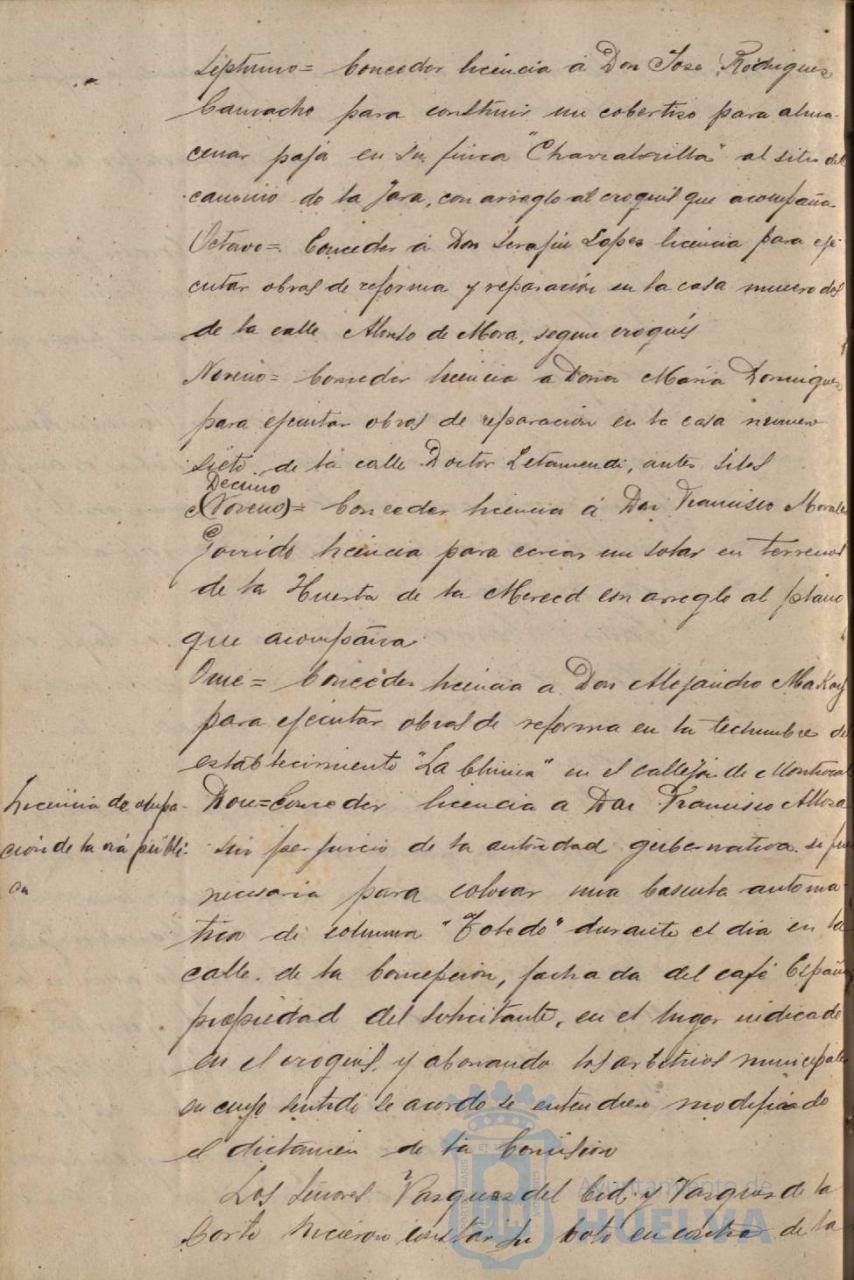 Septimo= Conceder licencia á Don Jose Rodriguez
Camacho para construir un cobertizo para alma-
cenar paja en su finca "Charcaborrilla" al sitio del
camino de la Jara, con arreglo al croquil que acompaña
Octavo= Conceder á Don Serafin Lopez licencia para eje-
cutar obras de reforma y reparación en la casa numero dos
de la calle Alonso de Mora, segun croquis
Noveno= Conceder licencia a Doña Maria Dominguez
para ejecutar obras de reparación en la casa número
siete de la calle Doctor Letamendi, antes Silos
Decimo
(Noveno)= Conceder licencia á Don Francisco Morales
Garrido licencia para cercar un solar en terrenos
de la Huerta de la Merced con arreglo al plano
que acompaña
Once= Conceder licencia a Don Alejandro MaKay
para ejecutar obras de reforma en la techumbre de
establecimiento "La China" en el callejón de Montrocal
Licencia de ocupa-
ción de la via públi-
ca
Doce=Conceder licencia a Don Francisco
sin perjuicio de la autoridad gubernativa si fue
necesaria para colocar una bascula automa-
tica de columna "Toledo" durante el dia en la
calle de la Concepción, fachada del café España
propiedad del solicitante, en el lugar indicado
en el croquis y abonando los arbitrios municipales
en cuyo sentido se acordo se entendiese modificado
el dictamen de la Comision
Los Señores Vazquez del Cid y Vazquez de la
Corte hicieron constar su voto en contra de la
Ayuntamiento de
HUELVA